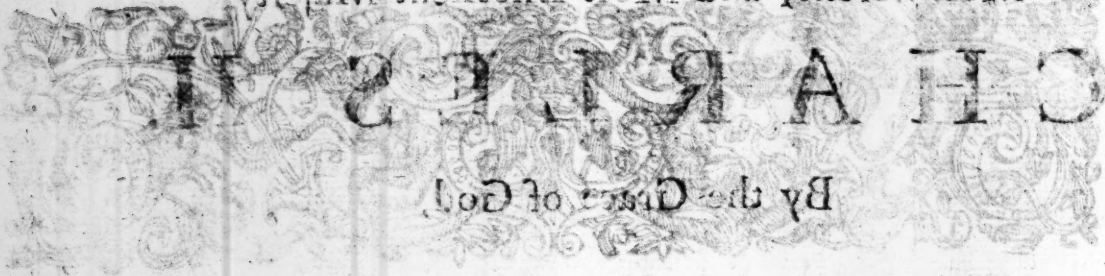 CHARLES II.
By the Grace of God,